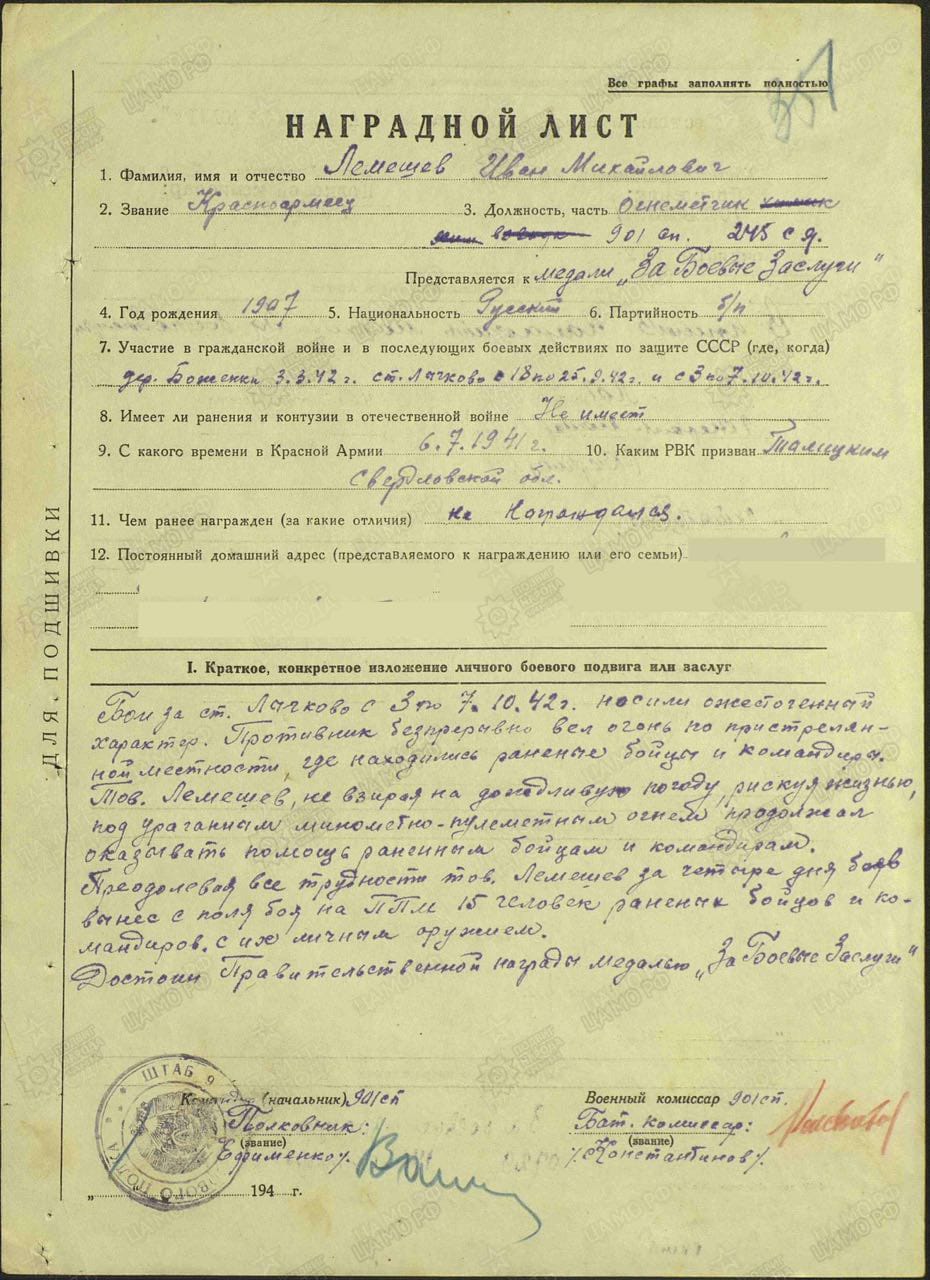 351
Все графы заполнять полностью
НАГРАДНОЙ ЛИСТ
1. Фамилия, имя и отчество Лемешев Иван Михайлович
2. Звание Красноармеец 3. Должность, часть Огнеметчик
901 сп. 245 с д.
Представляется к медали „За Боевые Заслуги"
4. Год рождения 1907 5. Национальность Русский 6. Партийность б/п
7. Участие в гражданской войне и в последующих боевых действиях по защите СССР (где, когда)
дер. Боженки 3.3.42 г. ст. Лычково с 18 по 25.9.42 г. и с 3 по 7.10.42 г.
8. Имеет ли ранения и контузии в отечественной войне Не имеет
9. С какого времени в Красной Армии 6.7.1941 г. 10. Каким РВК призван Талицким
Свердловской обл.
11. Чем ранее награжден (за какие отличия) не Награждался.
12. Постоянный домашний адрес (представляемого к награждению или его семьи)
I. Краткое, конкретное изложение личного боевого подвига или заслуг
Бои за ст. Лычково с 3 по 7.10.42 г. носили ожесточенный
характер. Противник безпрерывно вел огонь по пристрелян-
ной местности, где находились раненые бойцы и командиры.
Тов. Лемешев, не взирая на дождливую погоду, рискуя жизнью,
под ураганным минометно-пулеметным огнем продолжал
оказывать помощь раненным бойцам и командирам.
Преодолевая все трудности тов. Лемешев за четыре дня боев
вынес с поля боя на ППМ 15 человек раненых бойцов и ко-
мандиров. с их личным оружием.
Достоин Правительственной награды медалью „За Боевые Заслуги"
ДЛЯ ПОДШИВКИ
ШТАБ 9
Командир (начальник) 901 сп
Полковник:
(звание)
/Ефименко/.
Военный комиссар 901 сп.
Бат. комиссар:
(звание)
/Константинов/.
„ " 194 г.
ЦАМО РФ